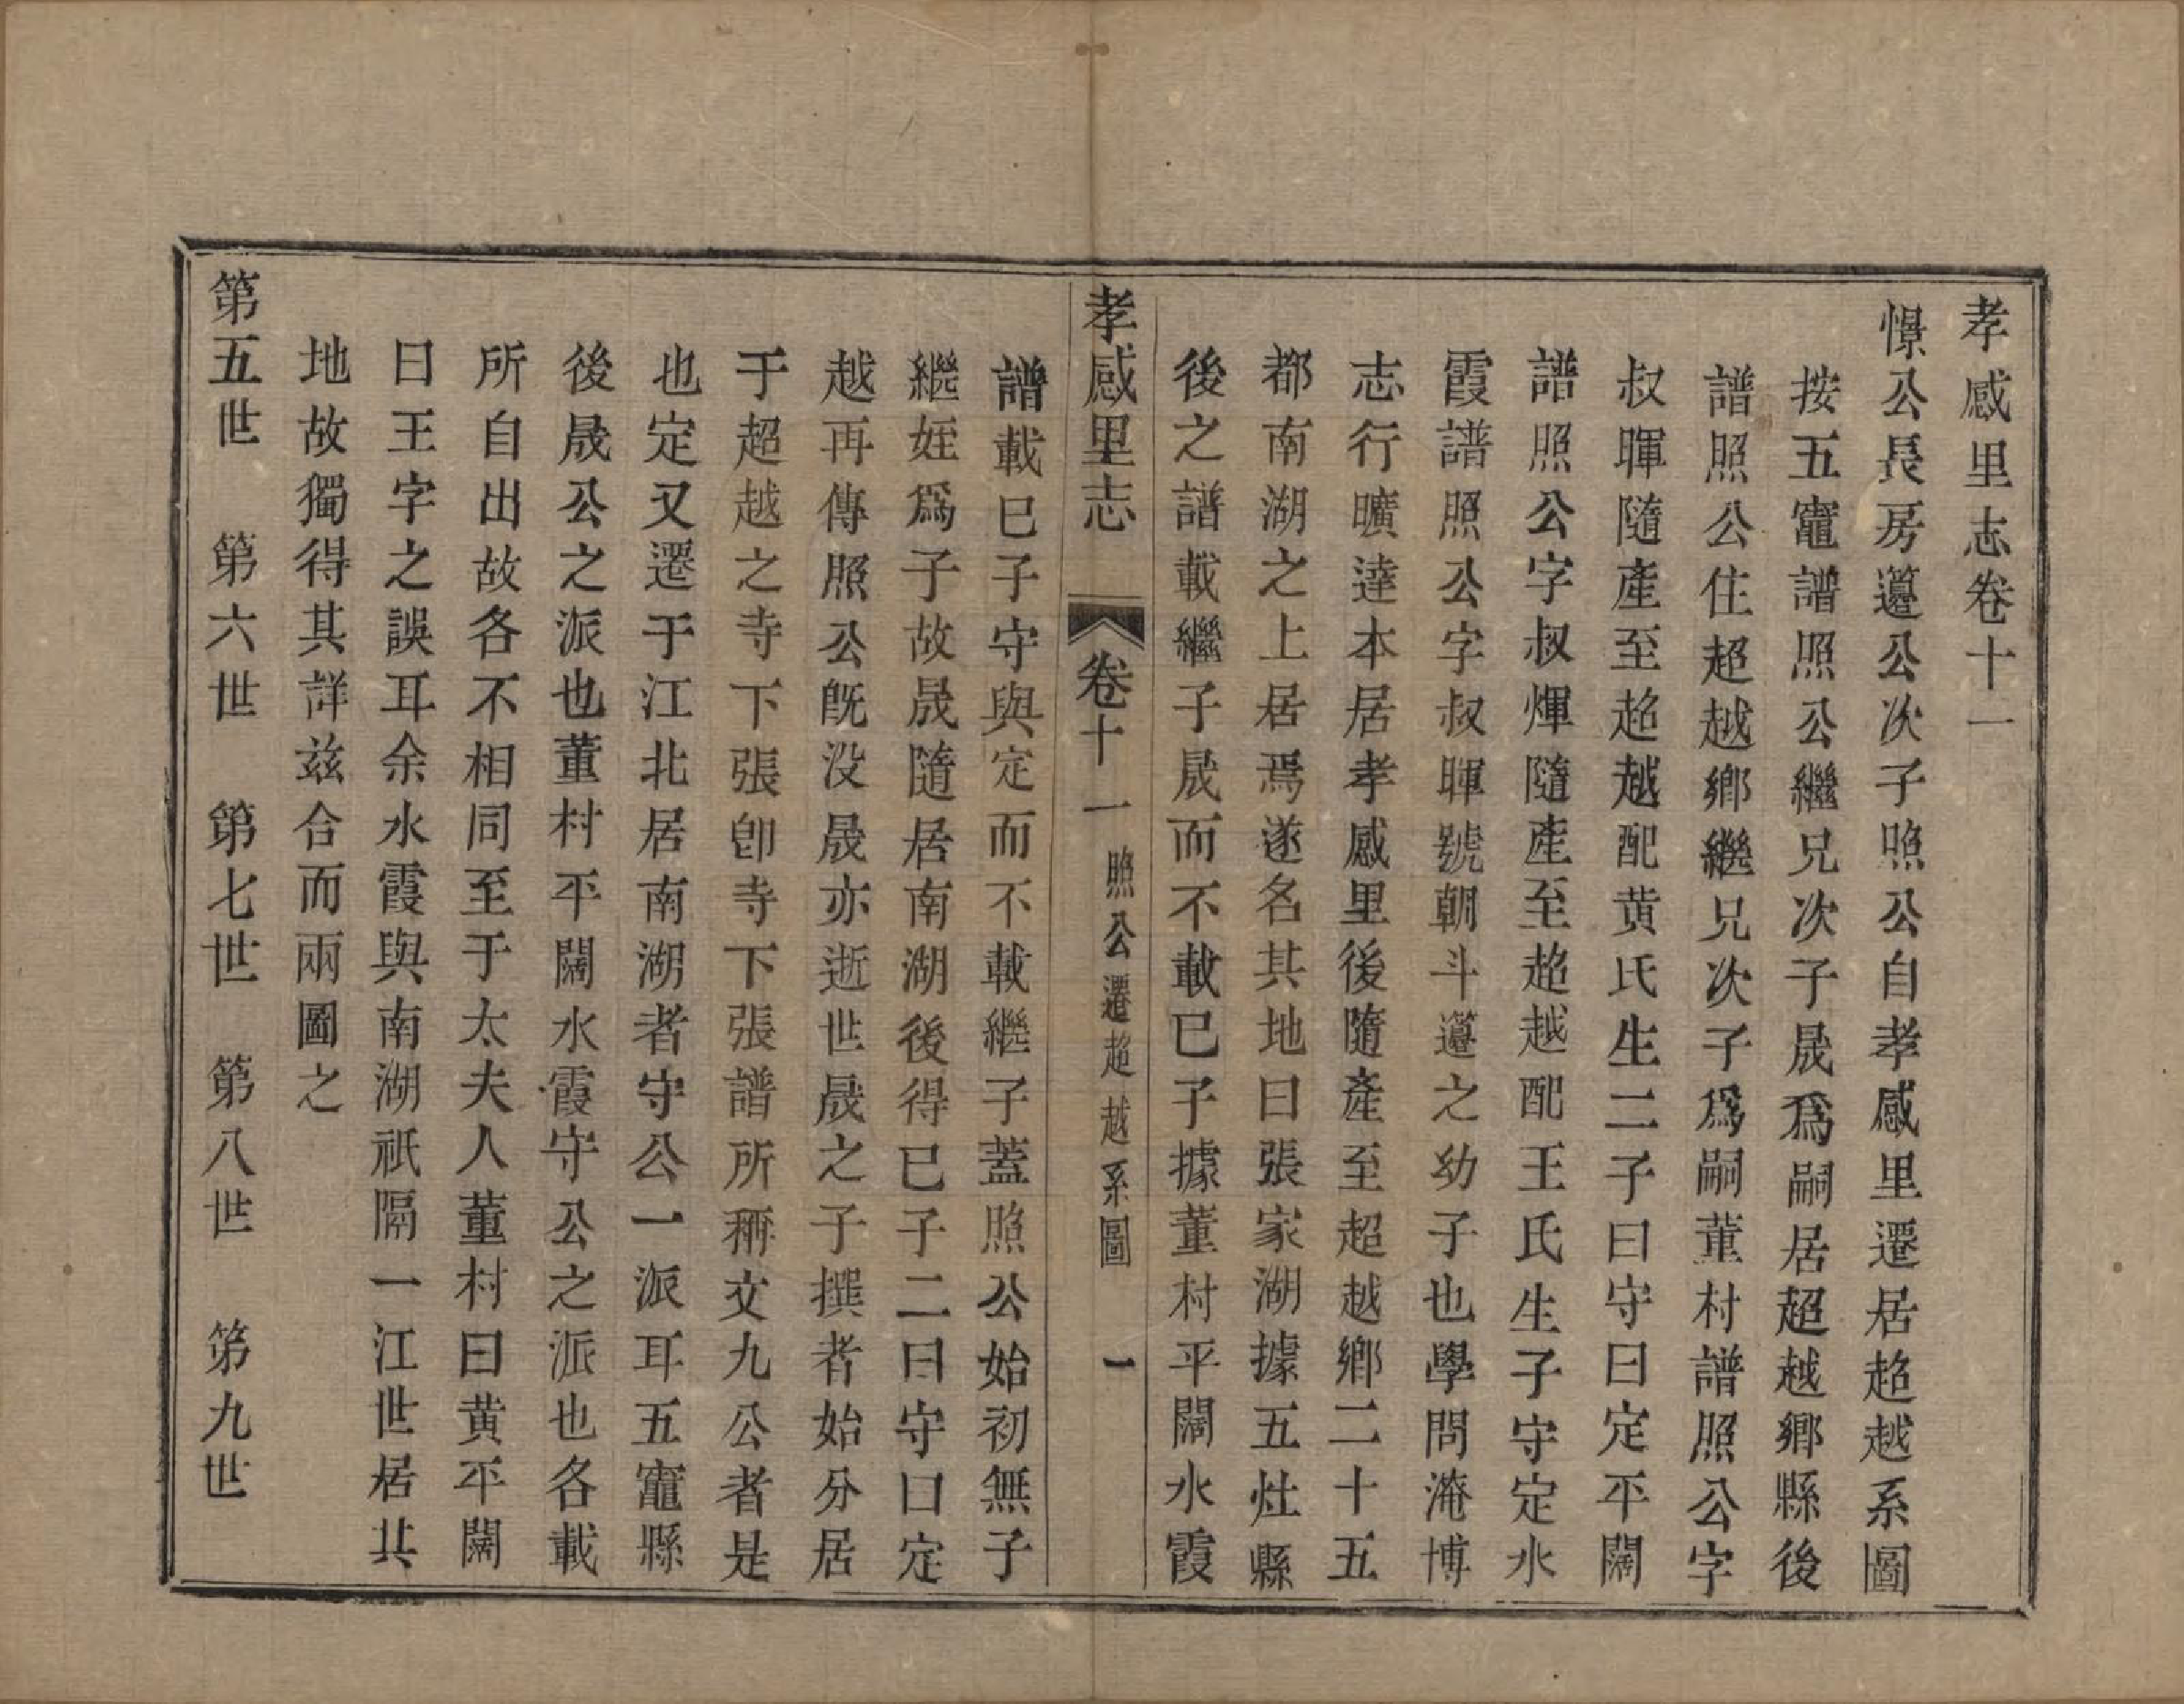 孝感里志卷十一
憬公長房薳公次子照公自孝感里遷居超越系圖
按五竈譜照公繼兄次子晟爲嗣居超越鄉縣後
譜照公住超越鄉繼兄次子爲嗣董村譜照公字
叔暉隨產至超越配黃氏生二子曰守曰定平闊
譜照公字叔煇隨產至超越配王氏生子守定水
霞譜照公字叔暉號朝斗薳之幼子也學問淹博
志行曠達本居孝感里後隨產至超越鄉二十五
都南湖之上居焉遂名其地曰張家湖據五灶縣
後之譜載繼子晟而不載已子據董村平闊水霞
孝感里志 卷十一 照公遷超越系圖 一
譜載已子守與定而不載繼子蓋照公始初無子
繼姪爲子故晟隨居南湖後得已子二曰守曰定
越再傳照公旣没晟亦逝世晟之子撰者始分居
于超越之寺下張卽寺下張譜所稱文九公者是
也定又遷于江北居南湖者守公一派耳五竈縣
後晟公之派也董村平闊水霞守公之派也各載
所自出故各不相同至于太夫人董村曰黃平闊
曰王字之誤耳余水霞與南湖祇隔一江世居其
地故獨得其詳兹合而兩圖之
第五世 第六世 第七世 第八世 第九世